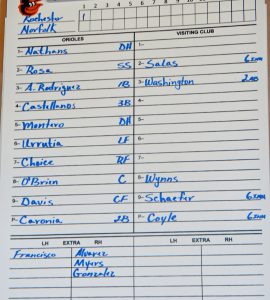 1 2 3 4 5 6 7 8 9 10
Rochester 1
Norfolk
ORIOLES VISITING CLUB
1- Nathans DH 1-
2- Rosa SS 2- Salas
3- A. Rodriguez 1B 3- Washington
4- Castellanos 3B 4-
5- Montero DH 5-
6- Urrutia LF 6-
7- Choice RF 7-
8- O'Brien C 8- Wynns
9- Davis CF 9- Schaefer
P- Caronia 2B P- Coyle
LH EXTRA RH LH EXTRA RH
Francisco Alvarez
Myers
Gonzalez